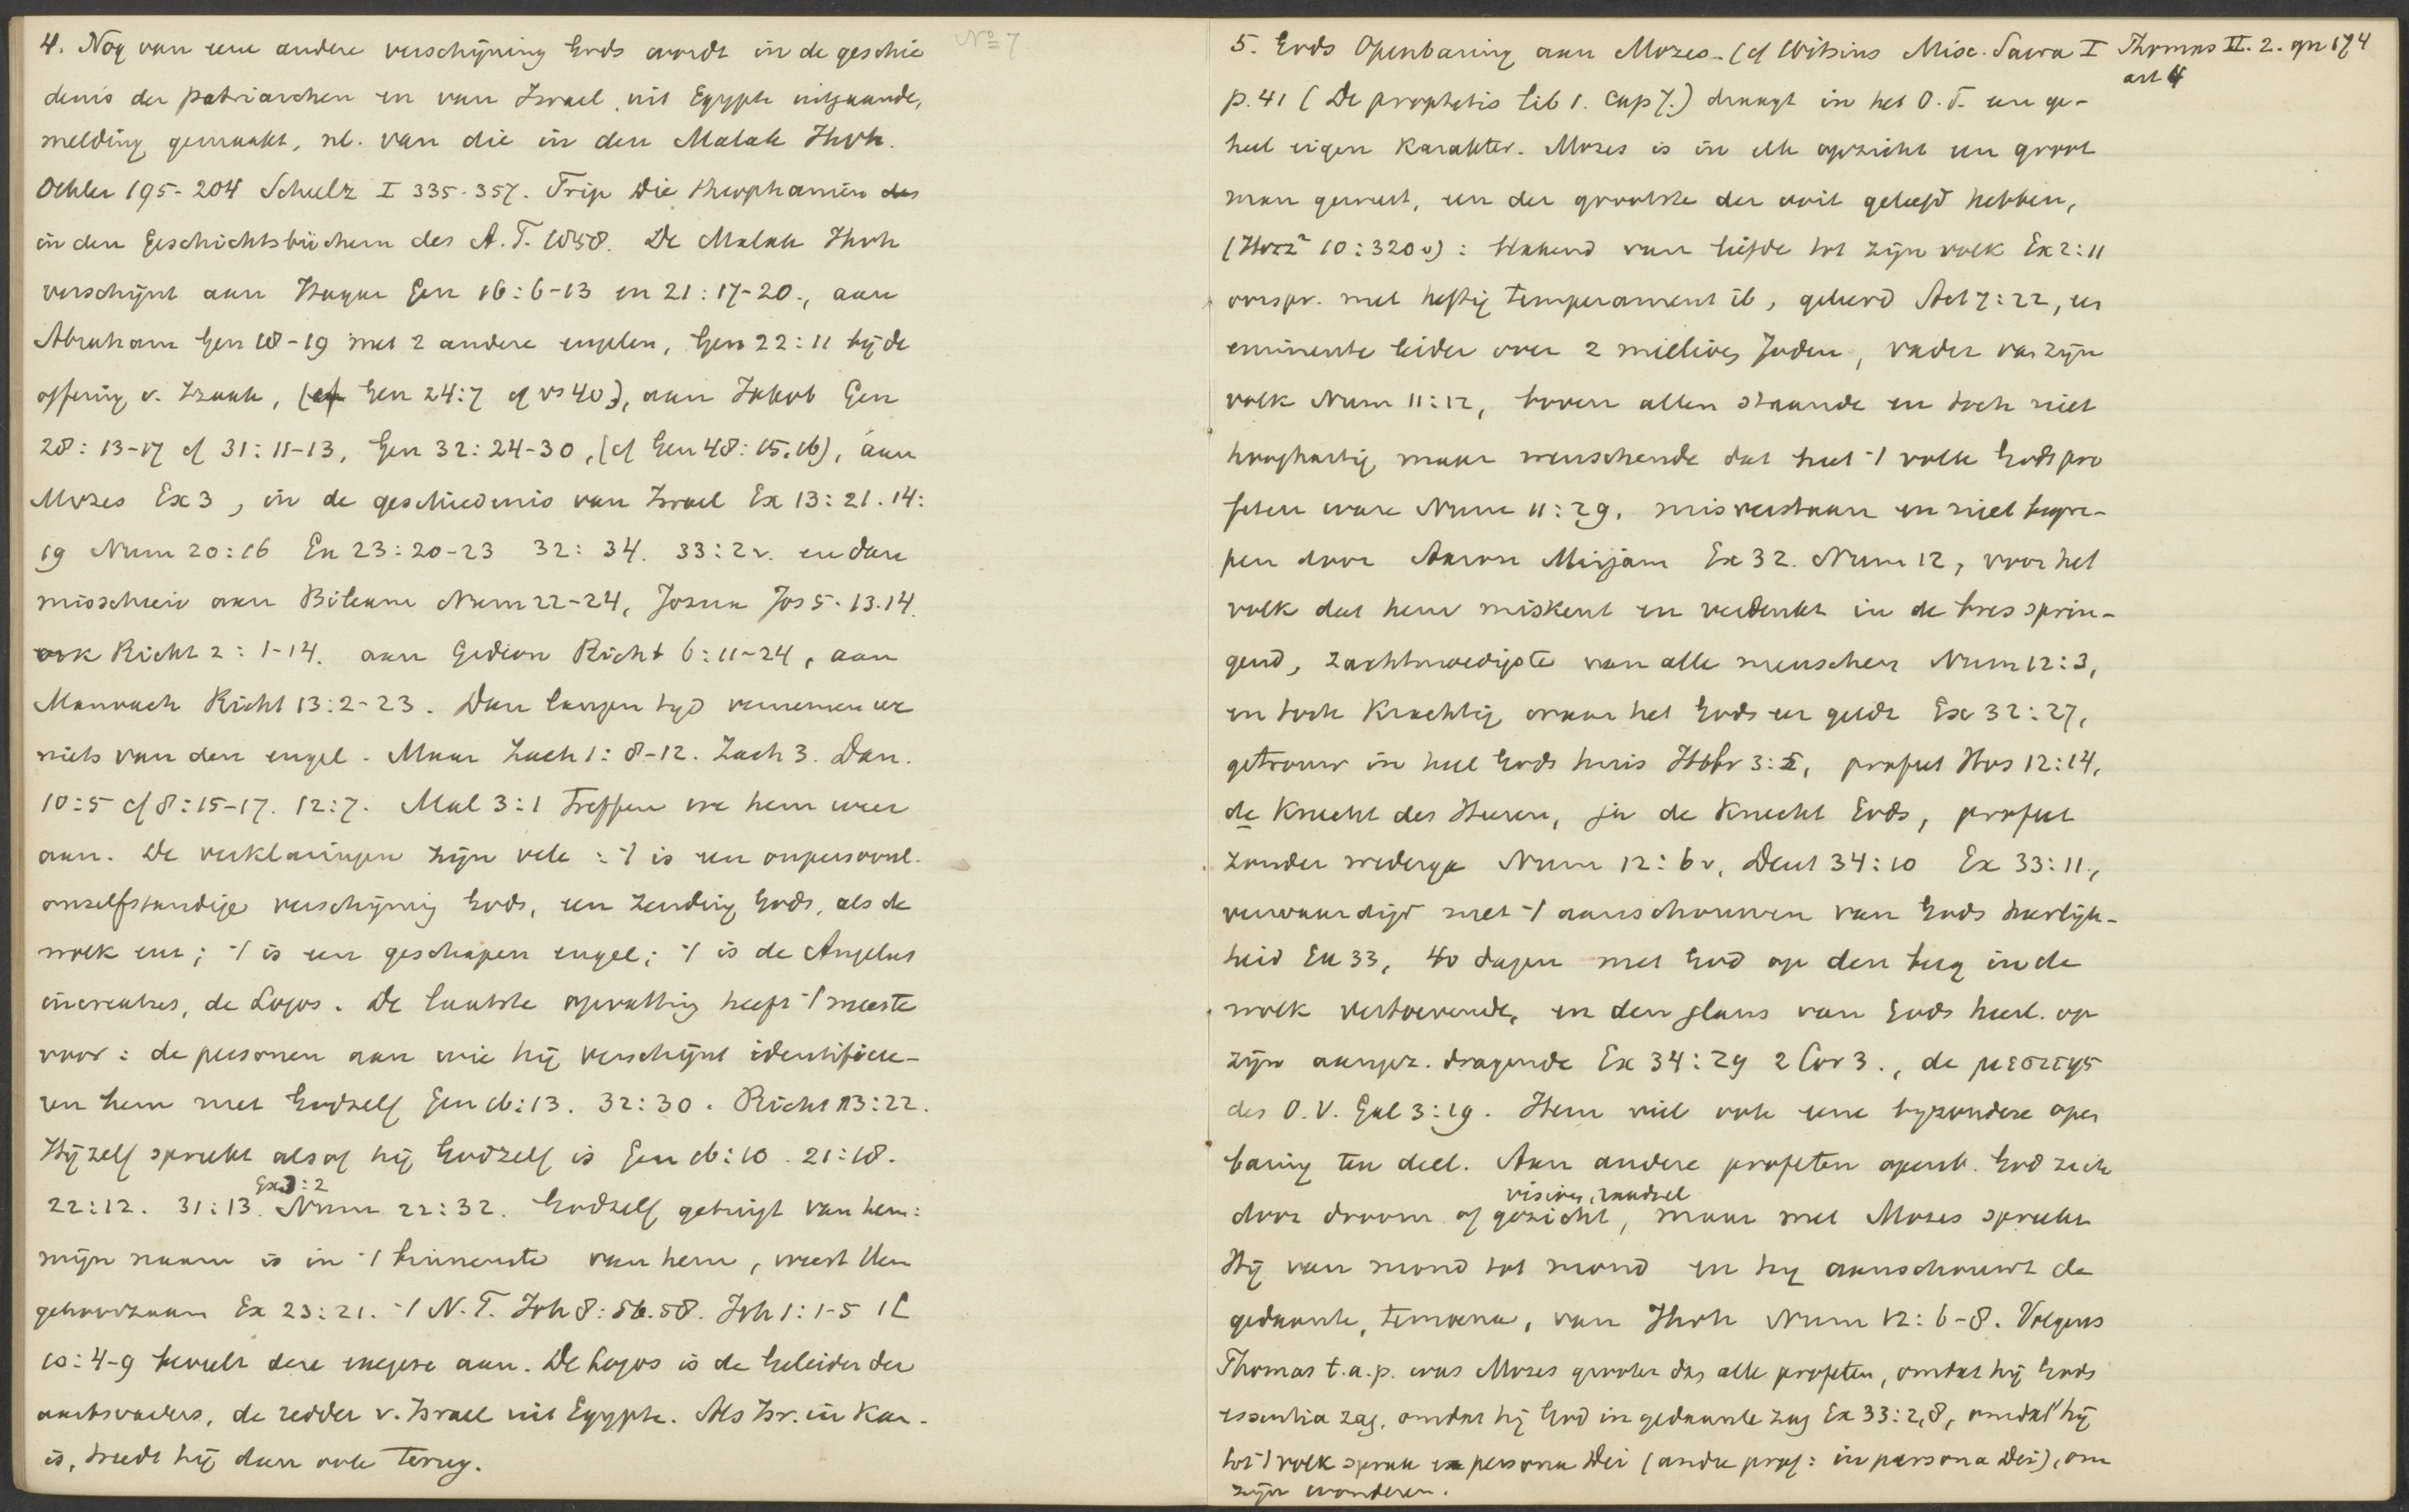 No 7
4. Nog van eene andere verschijning Gods wordt in de geschie
denis der patriarchen en van Israel, uit Egypte uitgaande,
melding gemaakt, nl. van die in den Malak Jhvh.
Oehler 195-204 Schulz I 335-357. Trip Die theophanien des
in den Geschichtsbüchern des A.T. 1858. De Malak Jhvh
verschijnt aan Hagar Gen 16:6-13 en 21:17-20., aan
Abraham Gen 18-19 met 2 andere engelen, Gen 22:11 bij de
offering v. Izaak, (cf Gen 24:7 cf vs 40), aan Jakob Gen
28:13-17 cf 31:11-13, Gen 32:24-30, (cf Gen 48:15.16), aan
Mozes Ex 3, in de geschiedenis van Israel Ex 13:21. 14:
19 Num 20:16 Ex 23:20-23 32:34. 33:2v. en dan
misschien aan Bileam Num 22-24, Jozua Jos 5.13.14.
ook Richt 2:1-14. aan Gideon Richt 6:11-24, aan
Manoach Richt 13:2-23. Dan langen tijd vernemen we
niets van den engel. Maar Zach 1:8-12. Zach 3. Dan.
10:5 cf 8:15-17. 12:7. Mal 3:1 treffen we hem weer
aan. De verklaringen zijn vele: 't is een onpersoonl.
onzelfstandige verschijning Gods, een zending Gods, als de
wolk enz; 't is een geschapen engel; 't is de Angelus
increatus, de Logos. De laatste opvatting heeft 't meeste
voor: de personen aan wie hij verschijnt identificee-
ren hem met Godzelf Gen 16:13. 32:30. Richt 13:22.
Hijzelf spreekt alsof hij Godzelf is Gen 16:10. 21:18.
Ex 3:2
22:12. 31:13. Num 22:32. Godzelf getuigt van hem:
mijn naam is in 't binnenste van hem, weest Hem
gehoorzaam Ex 23:21. 't N.T. Joh 8:56.58. Joh 1:1-5 1C
10:4-9 beveelt deze exegese aan. De Logos is de Geleider der
aartsvaders, de redder v. Israel uit Egypte. Als Isr. in Kan.
is, treedt hij dan ook terug.
5. Gods Openbaring aan Mozes. (cf Witsius Misc. Sacra I Thomas II. 2. qu 174
art 4
p. 41 (De prophetis lib 1. cap 7.) draagt in het O.T. een ge-
heel eigen karakter. Mozes is in elk opzicht een groot
man geweest, een der grootste der ooit geleefd hebben,
10:320v): blakend van liefde tot zijn volk Ex 2:11
oorspr. met heftig temperament ib, geleerd Act 7:22, en
eminente leider over 2 millioen Joden, vader van zijn
volk Num 11:12, boven allen staande en toch niet
hooghartig maar wenschende dat heel 't volk Gods pro
feten ware Num 11:29, misverstaan en niet begre-
pen door Aaron Mirjam Ex 32. Num 12, voor het
volk dat hem miskent en verdenkt in de bres sprin-
gend, zachtmoedigste van alle menschen Num 12:3,
en toch krachtig waar het Gods eer geldt Ex 32:27,
getrouw in heel Gods huis Hebr 3:5, profeet Hos 12:14,
de Knecht des Heeren, ja de Knecht Gods, profeet
zonder wederga Num 12:6v, Deut 34:10 Ex 33:11.,
verwaardigd met 't aanschouwen van Gods heerlijk-
heid Ex 33, 40 dagen met God op den berg in de
wolk vertoevende, en den glans van Gods heerl. op
zijn aangez. dragende Ex 34:29 2 Cor 3., de μεσιτης
des O.V. Gal 3:19. Hem viel ook eene byzondere open
baring ten deel. Aan andere profeten openb. God zich
visioen, raadsel
door droom of gezicht, maar met Mozes spreekt
Hij van mond tot mond en hij aanschouwt de
gedaante, temoena, van Jhvh Num 12:6-8. Volgens
Thomas t.a.p. was Mozes grooter dan alle profeten, omdat hij Gods
essentia zag, omdat hij God in gedaante zag Ex 33:2,8, omdat hij
tot 't volk sprak ex persona Dei (andre prof: in persona Dei), om
zijn wonderen.